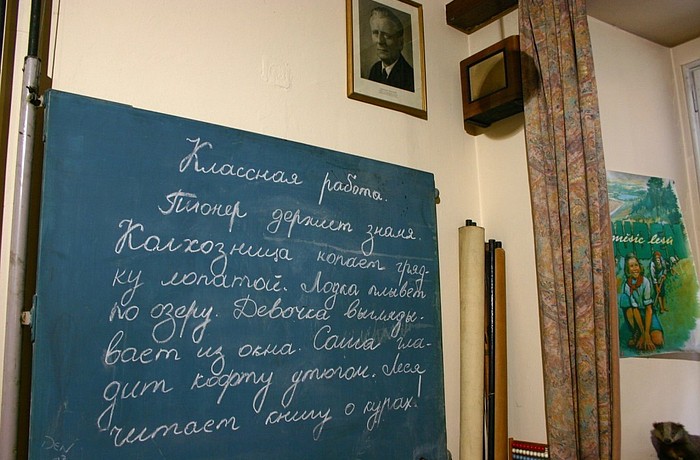 Классная работа.
Пионер держит знамя.
Колхозница копает гряд-
ку лопатой. Лодка плывёт
по озеру. Девочка выгляды-
вает из окна. Саша гла-
дит кофту утюгом. Леся
читает книгу о курах!
měsíc lesů